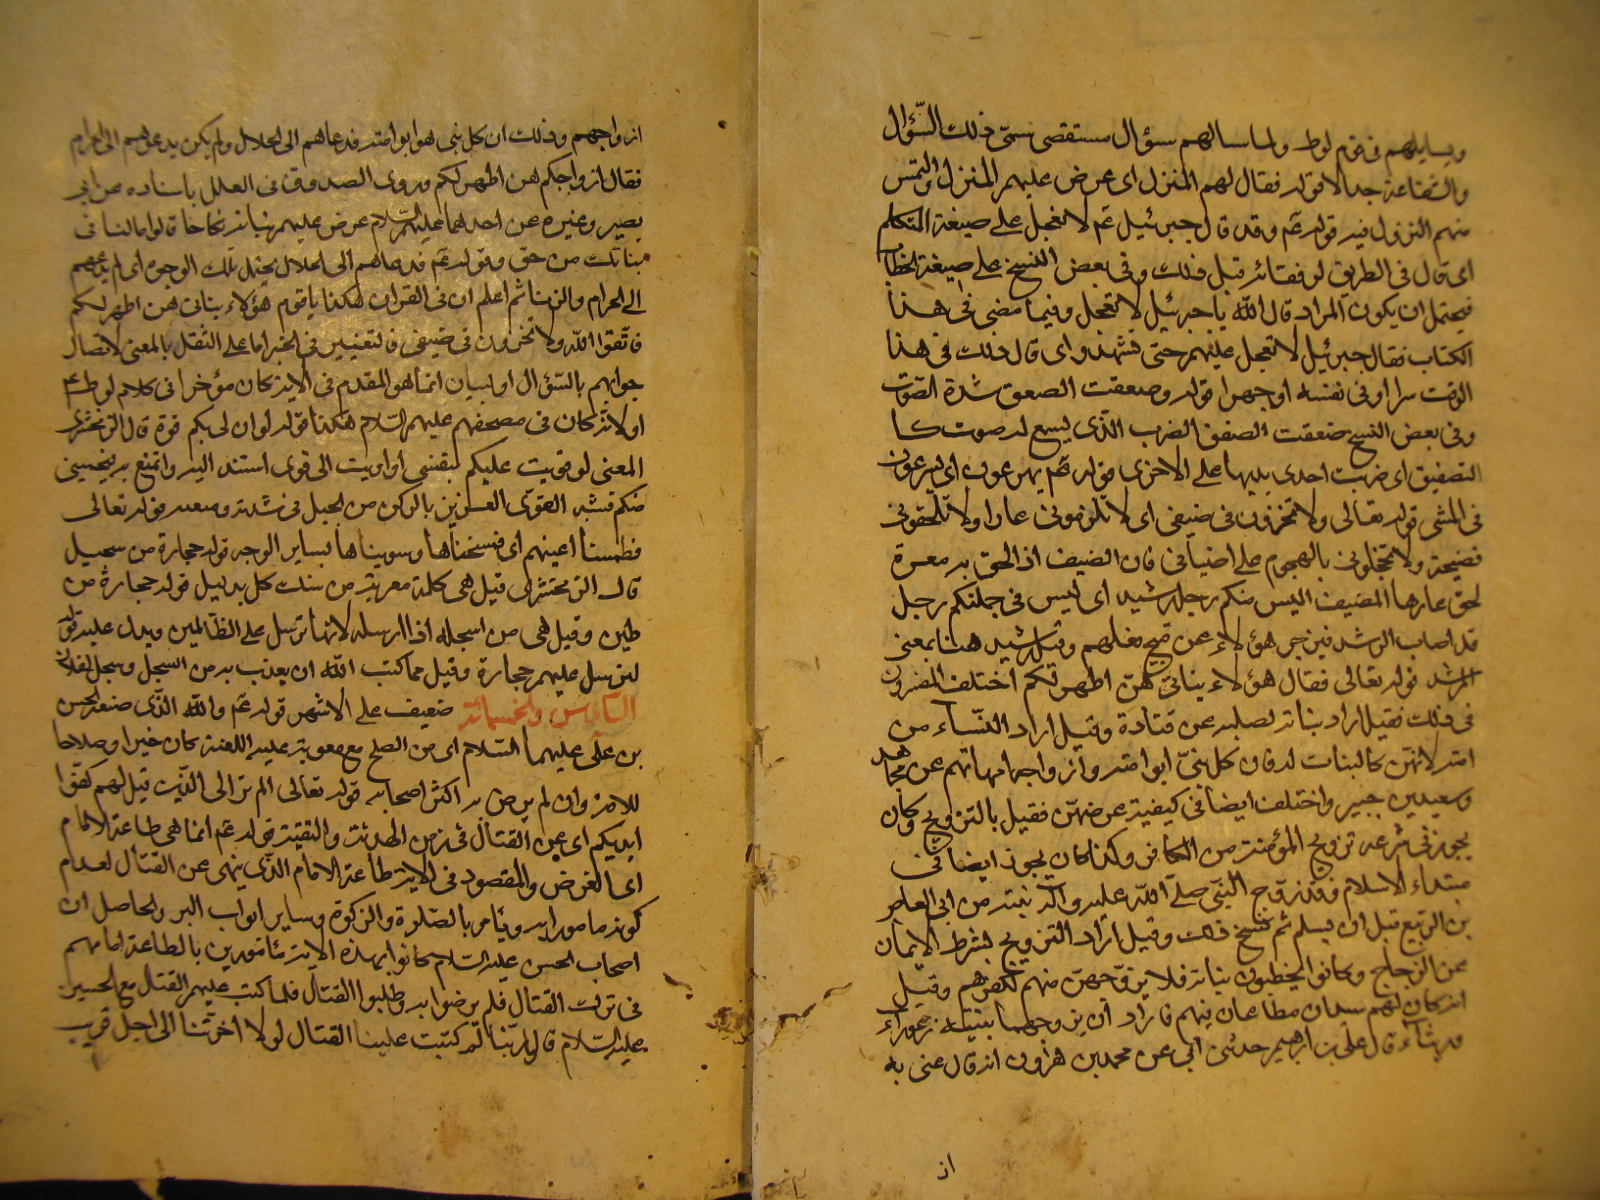 ويسايلهم في قوم لوط ولما سالهم سؤال مستقصى سمّى ذلك السّؤال
والشفاعة جدالا قوله فقال لهم المنزل اى عرض عليهم المنزل والتمس
منهم النزول فيه قوله عم وقد قال جبرئيل عم لا تعجل على صيغة المتكلم
اى قال في الطريق لرفقائه قبل ذلك وفي بعض النسخ على صيغة الخطاب
فيحتمل ان يكون المراد قال الله يا جبرئيل لا تعجل وفيما مضى في هذا
الكتاب فقال جبرئيل لا تعجل عليهم حتى يشهد واى قال ذلك في هذا
الوقت سرا او في نفسه او جهرا قوله وصعقت الصعق شدة الصّوت
وفي بعض النسخ صفقت الصفق الضرب الّذى يسمع له صوت كا
التصفيق اى ضربت احدى يديها على الاخرى قوله عم يهرعون اى يسرعون
في المشى قوله تعالى ولا تخزون في ضيفي اى لا تلزموني عارا ولا تلحقوني
فضيحة ولا تخجلوني بالهجوم على اضيافي فان الضيف اذا لحق به معرة
لحق عارها المضيف اليس منكم رجل رشيد اى ليس في جملتكم رجل
قد اصاب الرشد فيزجر هؤلاء عن قبيح فعلهم وقيل رشيد هنا بمعنى
المرشد قوله تعالى فقال هؤلاء بناتي هنّ اطهر لكم اختلف المفسرون
في ذلك فقيل اراد بناته لصلبه عن قتادة وقيل اراد النّساء من
امته لانهنّ كالبنات له فان كل نبىّ ابو امته وازواجه امهاتهم عن مجاهد
وسعيد بن جبير واختلف ايضا في كيفية عرضهنّ فقيل بالتزويج وكان
يجوز في شرعه تزويج المؤمنة من الكافر وكذا كان يجوز ايضا في
مبتداء الاسلام وقد زوّج النبىّ صلّى اللّه عليه وآله بنته من ابى العاص
بن الربيع قبل ان يسلم ثم نسخ ذلك وقيل اراد التزويج بشرط الايمان
عن الزجاج وكانوا يخطبون بناته فلا يزوّجهنّ منهم لكفرهم وقيل
انه كان لهم سيدان مطاعان فيهم فاراد ان يزوجهما بنيتيه زعوراء
ورثياء قال على بن ابرهيم حدثنى ابى عن محمد بن هارون انه قال عنى به
از
ازواجهم وذلك ان كل نبى هو ابو امته فدعاهم الى الحلال ولم يكن يدعوهم الى الحرام
فقال ازواجكم هن اطهر لكم وروى الصدوق في العلل باسناده عن ابى
بصير وغيره عن احدهما عليهم السّلام عرض عليهم بناته نكاحا قالوا مالنا في
بناتك من حق وقوله عم فدعاهم الى الحلال يحتمل تلك الوجوه اى لم يدعهم
الى الحرام والزنا ثم اعلم ان في القران هكذا يا قوم هؤلاء بناتي هن اطهر لكم
فاتّقوا اللّه ولا تخزون في ضيفي فالتغيير في الخبر اما على النقل بالمعنى لاتصال
جوابهم بالسّؤال او لبيان ان ما هو المقدم في الاية كان مؤخرا في كلام لوط عم
او لانه كان في مصحفهم عليهم السّلام هكذا قوله لو ان لي بكم قوة قال الزمخشرى
المعنى لو قويت عليكم بنفسي او اويت الى قوى استند اليه واتمنع به فيحميني
منكم فشبه القوىّ العزيز بالركن من الجبل في شدته ومنعته قوله تعالى
فطمسنا اعينهم اى فمسحناها وسويناها بساير الوجه قوله حجارة من سجيل
قال الزمخشرى قيل هى كلمة معربة من سنك كل بدليل قوله حجارة من
طين وقيل هى من اسجله اذا ارسله لانها ترسل على الظّالمين ويدل عليه قوله
لنرسل عليهم حجارة وقيل مما كتب اللّه ان يعذب به من السجل وسجل لفلان
السّادس والخمسمائة ضعيف على الاشهر قوله عم واللّه الّذى صنعه الحسن
بن على عليهما السّلام اى من الصلح مع معوية عليه اللعنة كان خيرا وصلاحا
للامة وان لم يرض به اكثر اصحابه قوله تعالى الم تر الى الّذين قيل لهم كفّوا
ايديكم اى عن القتال في زمن الهدنة والتقية قوله عم انما هى طاعة الامام
اى الغرض والمقصود في الاية طاعة الامام الّذى ينهى عن القتال لعدم
كونه مامورا به ويامر بالصّلوة والزكوة وساير ابواب البر والحاصل ان
اصحاب الحسن عليه السّلام كانوا بهذه الاية مامورين بالطاعة امامهم
في ترك القتال فلم يرضوا به وطلبوا القتال فلما كتب عليهم القتال مع الحسين
عليه السّلام قالوا ربّنا لم كتبت علينا القتال لولا اخرتنا الى اجل قريب